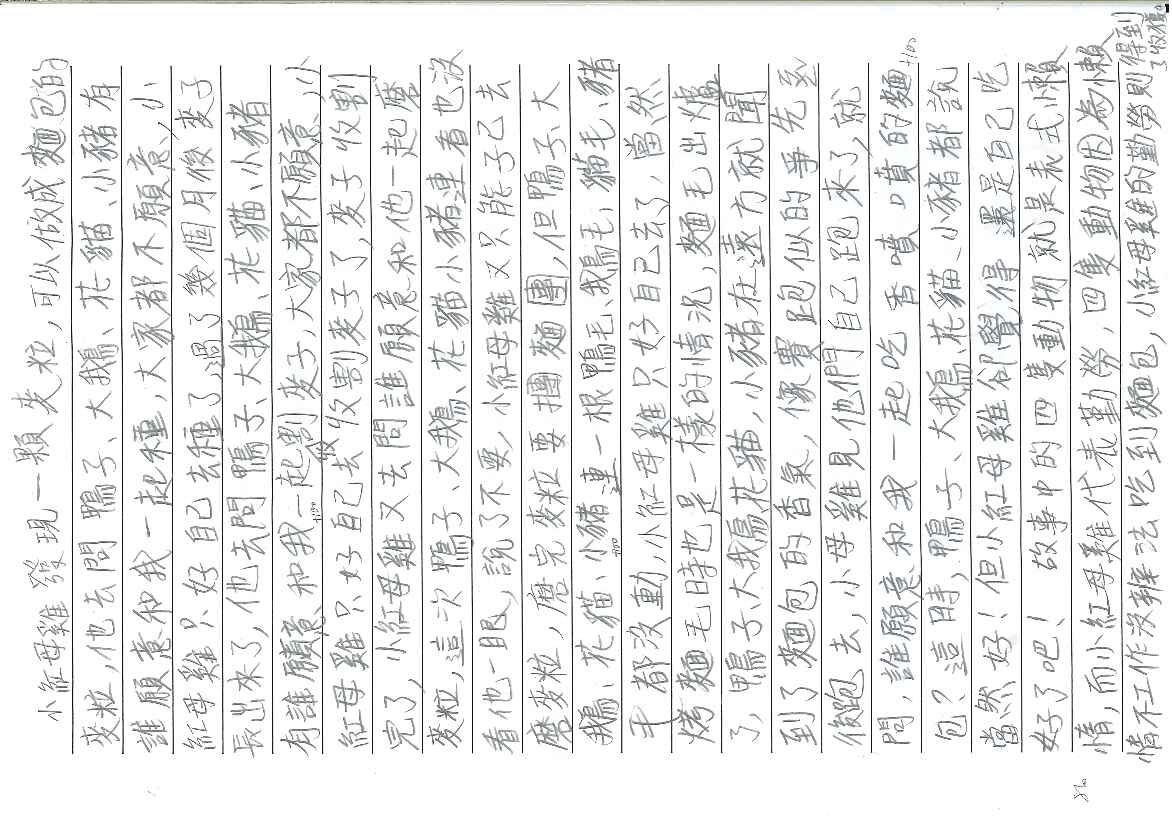 小紅母雞發現一顆麥粒，可以做成麵包的
麥粒，他去問鴨子、大鵝、花貓、小豬有
誰願意和我一起種，大家都不願意，小
紅母雞只好自己去種了。過了幾個月後麥子
長出來了，他去問鴨子大鵝、花貓、小豬
有誰願意和我一起割麥子，大家都不願意，小
+100
紅母雞只好自己去收割麥子了，麥子收割
後
完了，小紅母雞又去問誰願意和他一起磨
麥粒，這次鴨子、大鵝、花貓小豬連看也沒
看他一眼，說了不要，小紅母雞又只能子己去
磨麥粒，磨完麥粒要揉麵團，但鴨子、大
鵝、花貓、小豬連一根鴨毛、鵝毛、貓毛、豬
+100
毛都沒動，小紅母雞只好自己去了，當然
烤麵毛時也是一樣的情況，麵毛出爐
了，鴨子、大鵝花貓，小豬在遠方就聞
到了麵包的香氣，像賽跑似的爭先恐
後跑去，小母雞見他們自己跑來了，就
問，誰願意和我一起吃香噴口賁的麵
+100
包？這時，鴨子、大鵝、花貓、小豬都說
當然好！但小紅母雞卻覺得還是自己吃
好了吧！ 故事中的四隻動物就是表式小懶
惰，而小紅母雞代表勤勞，四隻動物因為懶
86
惰不工作沒辦法吃到麵包，小紅母雞的勤勞則得到
收穫。